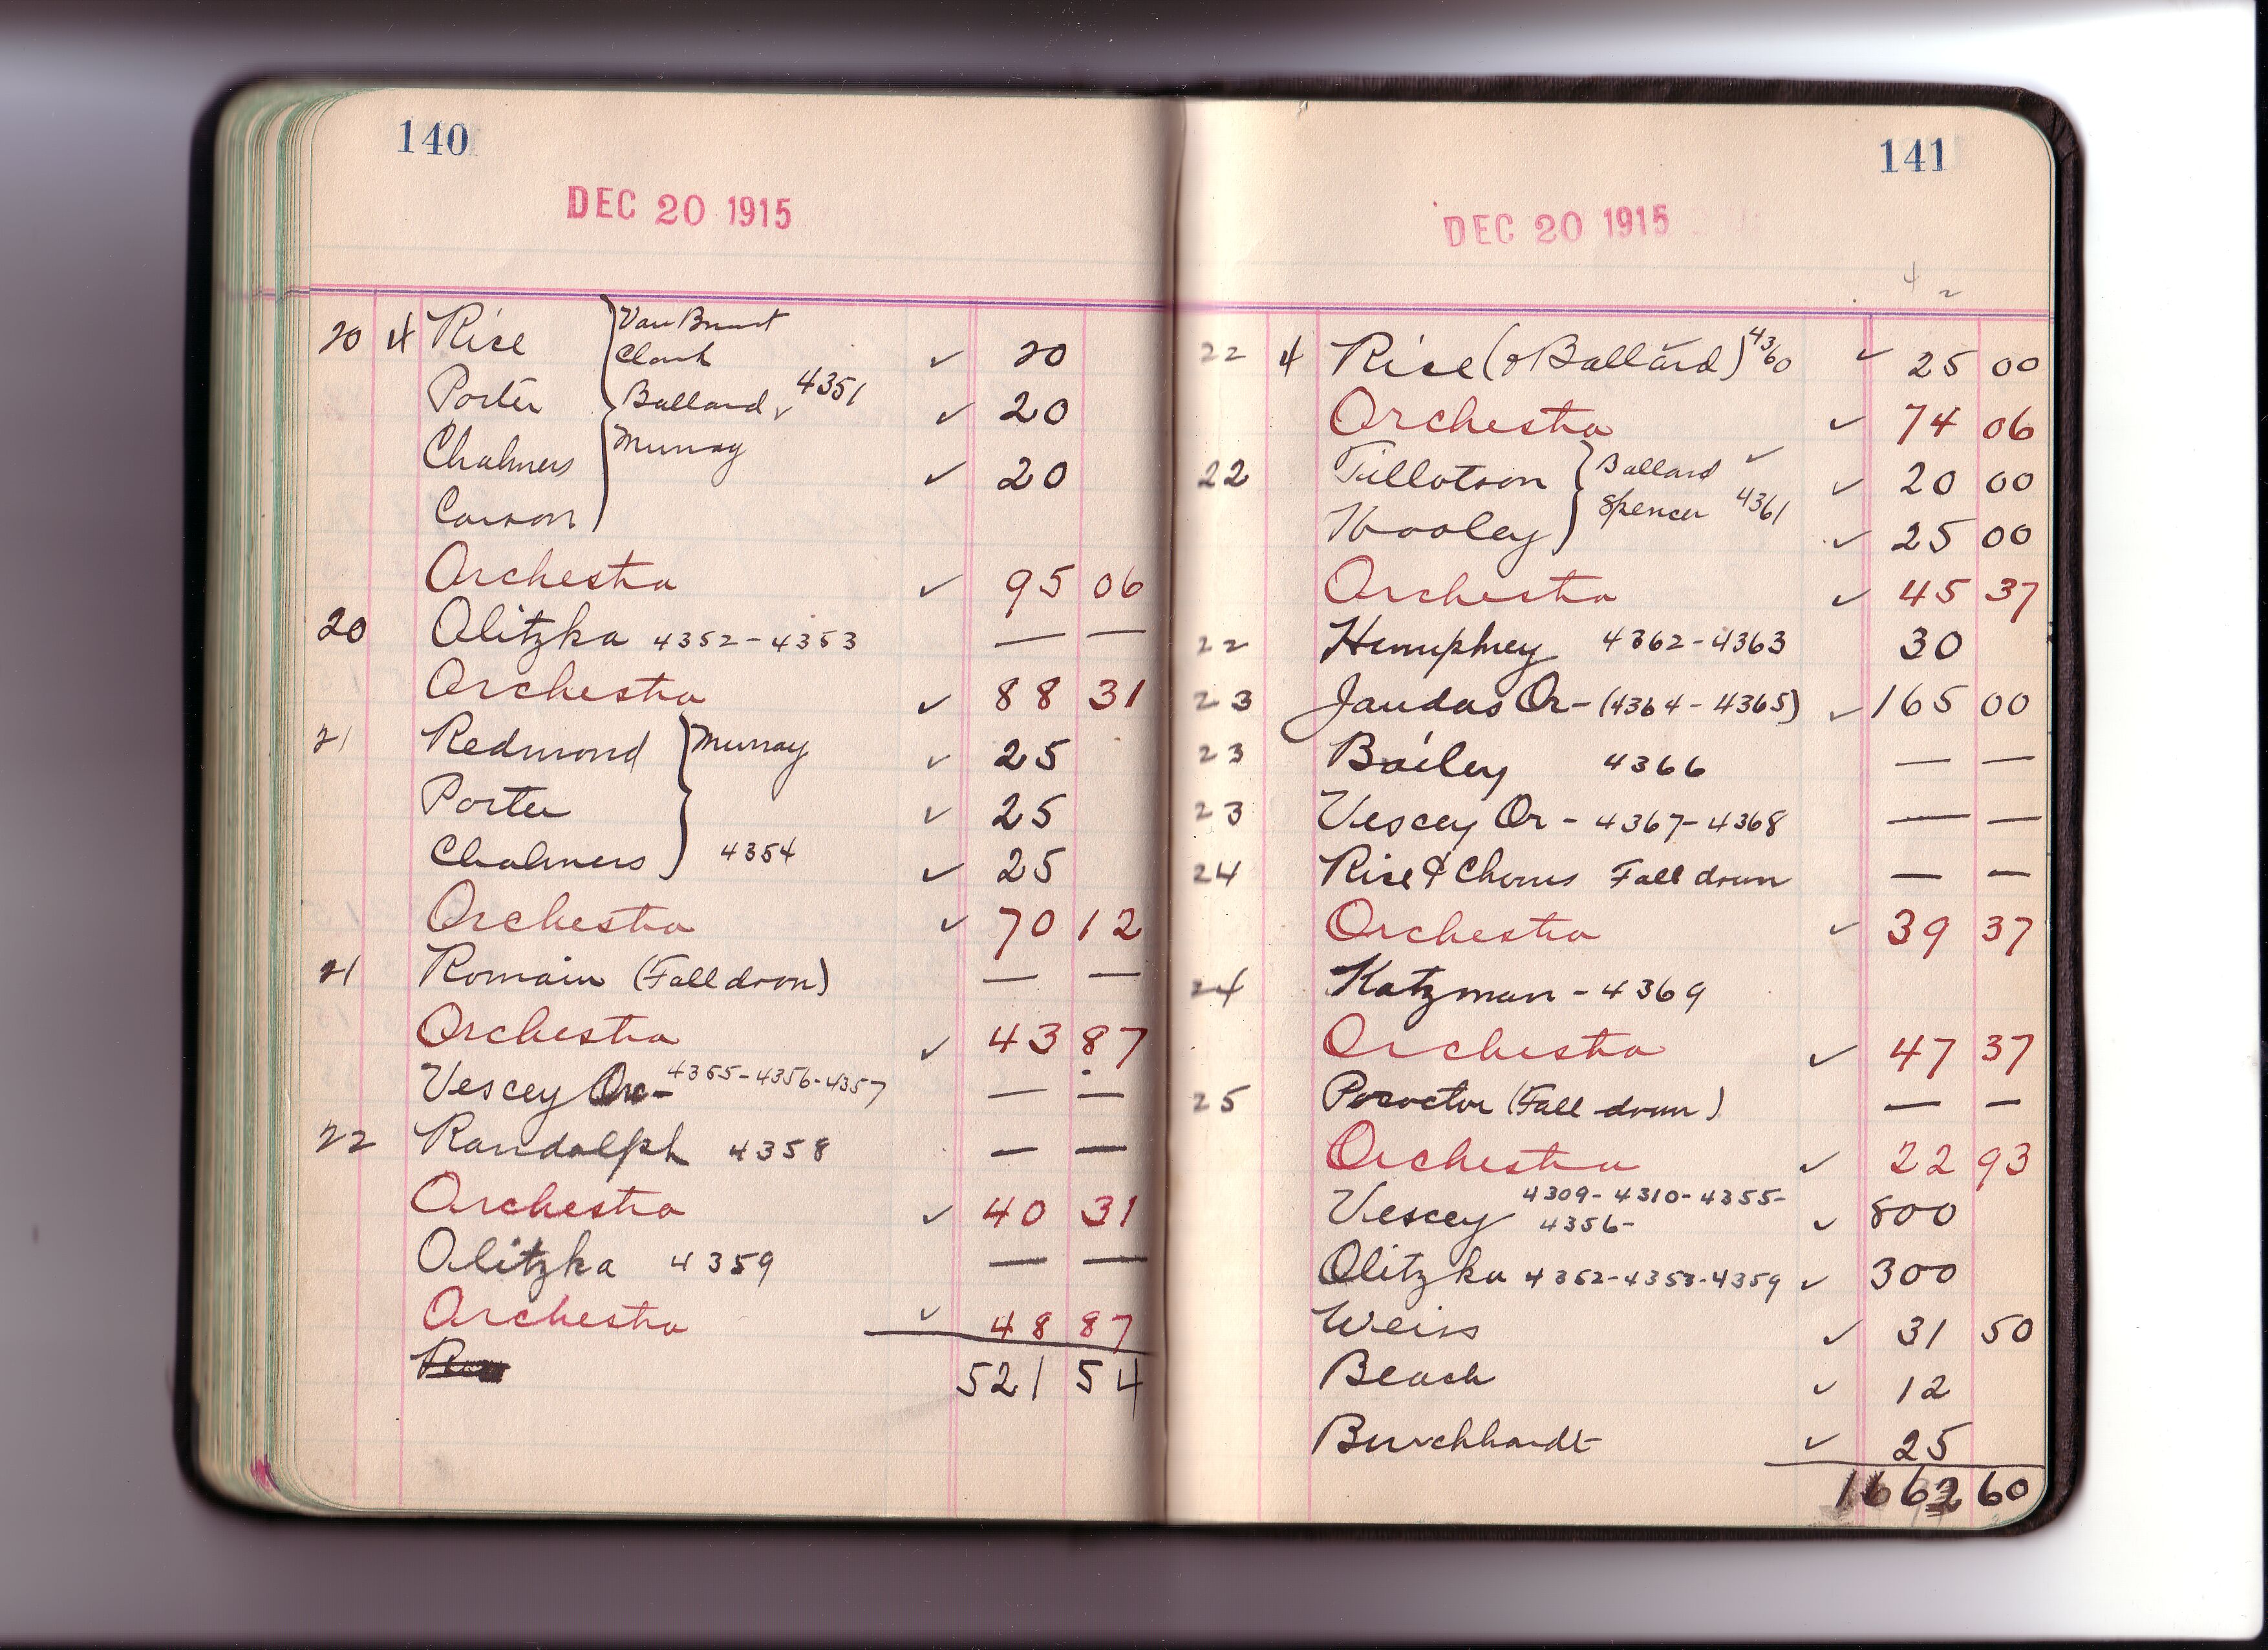 140
DEC 20 1915
20 4 Rice } Van Brunt
Clark ✓ 20
Porter Ballard ✓ 4351 ✓ 20
Chalmers } Murray ✓ 20
Carson
Orchestra ✓ 95 06
20 Olitzka 4352-4353 — —
Orchestra ✓ 88 31
21 Redmond } Murray ✓ 25
Porter ✓ 25
Chalmers 4354 ✓ 25
Orchestra ✓ 70 12
21 Romain (Fall down) — —
Orchestra ✓ 43 87
Vescey Or- 4355-4356-4357 — —
22 Randolph 4358 — —
Orchestra ✓ 40 31
Olitzka 4359 — —
Orchestra ✓ 48 87
521 54
141
DEC 20 1915
4 2
22 4 Rice (& Ballard) 4360 ✓ 25 00
Orchestra ✓ 74 06
22 Tillotson } Ballard ✓ ✓ 20 00
Hooley Spencer 4361 ✓ 25 00
Orchestra ✓ 45 37
22 Humphrey 4362-4363 30
23 Jaudas Or- (4364-4365) ✓ 165 00
23 Bailey 4366 — —
23 Vescey Or- 4367-4368 — —
24 Rice & Chorus Fall down — —
Orchestra ✓ 39 37
24 Katzman - 4369
Orchestra ✓ 47 37
25 Porvctor (Fall down) — —
Orchestra ✓ 22 93
Vescey 4309-4310-4355-
4356- ✓ 800
Olitzka 4352-4353-4359 ✓ 300
Weiss ✓ 31 50
Beach ✓ 12
Burchhardt ✓ 25
1662 60